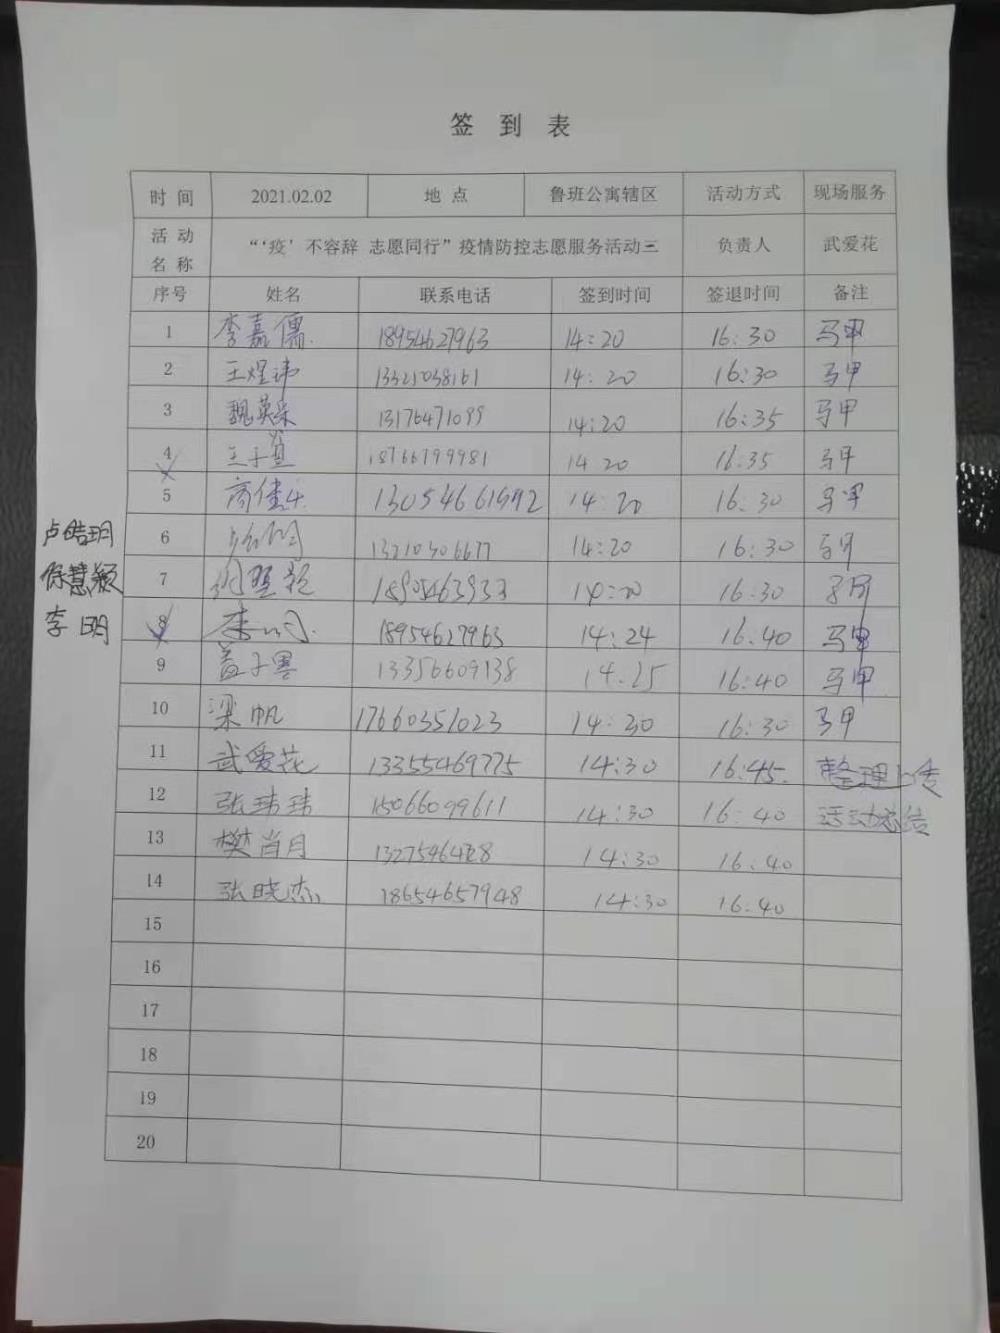 签 到 表
时 间 2021.02.02 地 点 鲁班公寓辖区 活动方式 现场服务
活 动 名 称 “‘疫’不容辞 志愿同行”疫情防控志愿服务活动三 负责人 武爱花
序号 姓名 联系电话 签到时间 签退时间 备注
1 李嘉儒 18954627963 14:20 16:30 马甲
2 王煜祎 13321038161 14:20 16:30 马甲
3 魏英采 13176471099 14:20 16:35 马甲
4 王子萱 18766799981 14 20 16:35 马甲
5 商佳 14:20 16:30 马甲
卢皓玥 6 14:20 16:30 马甲
徐慧颖 7 14:20 16:30 马甲
李明 8 李明 18954627963 14:24 16:40 马甲
9 盖子 13356609138 14.25 16:40 马甲
10 梁帆 17660351023 14:30 16:30 马甲
11 武爱花 13355469775 14:30 16:45. 整理上传
12 张玮玮 15066099611 14:30 16:40 活动总结
13 樊肖月 14:30 16.40
14 张晓杰 18654657948 14:30 16:40
15
16
17
18
19
20